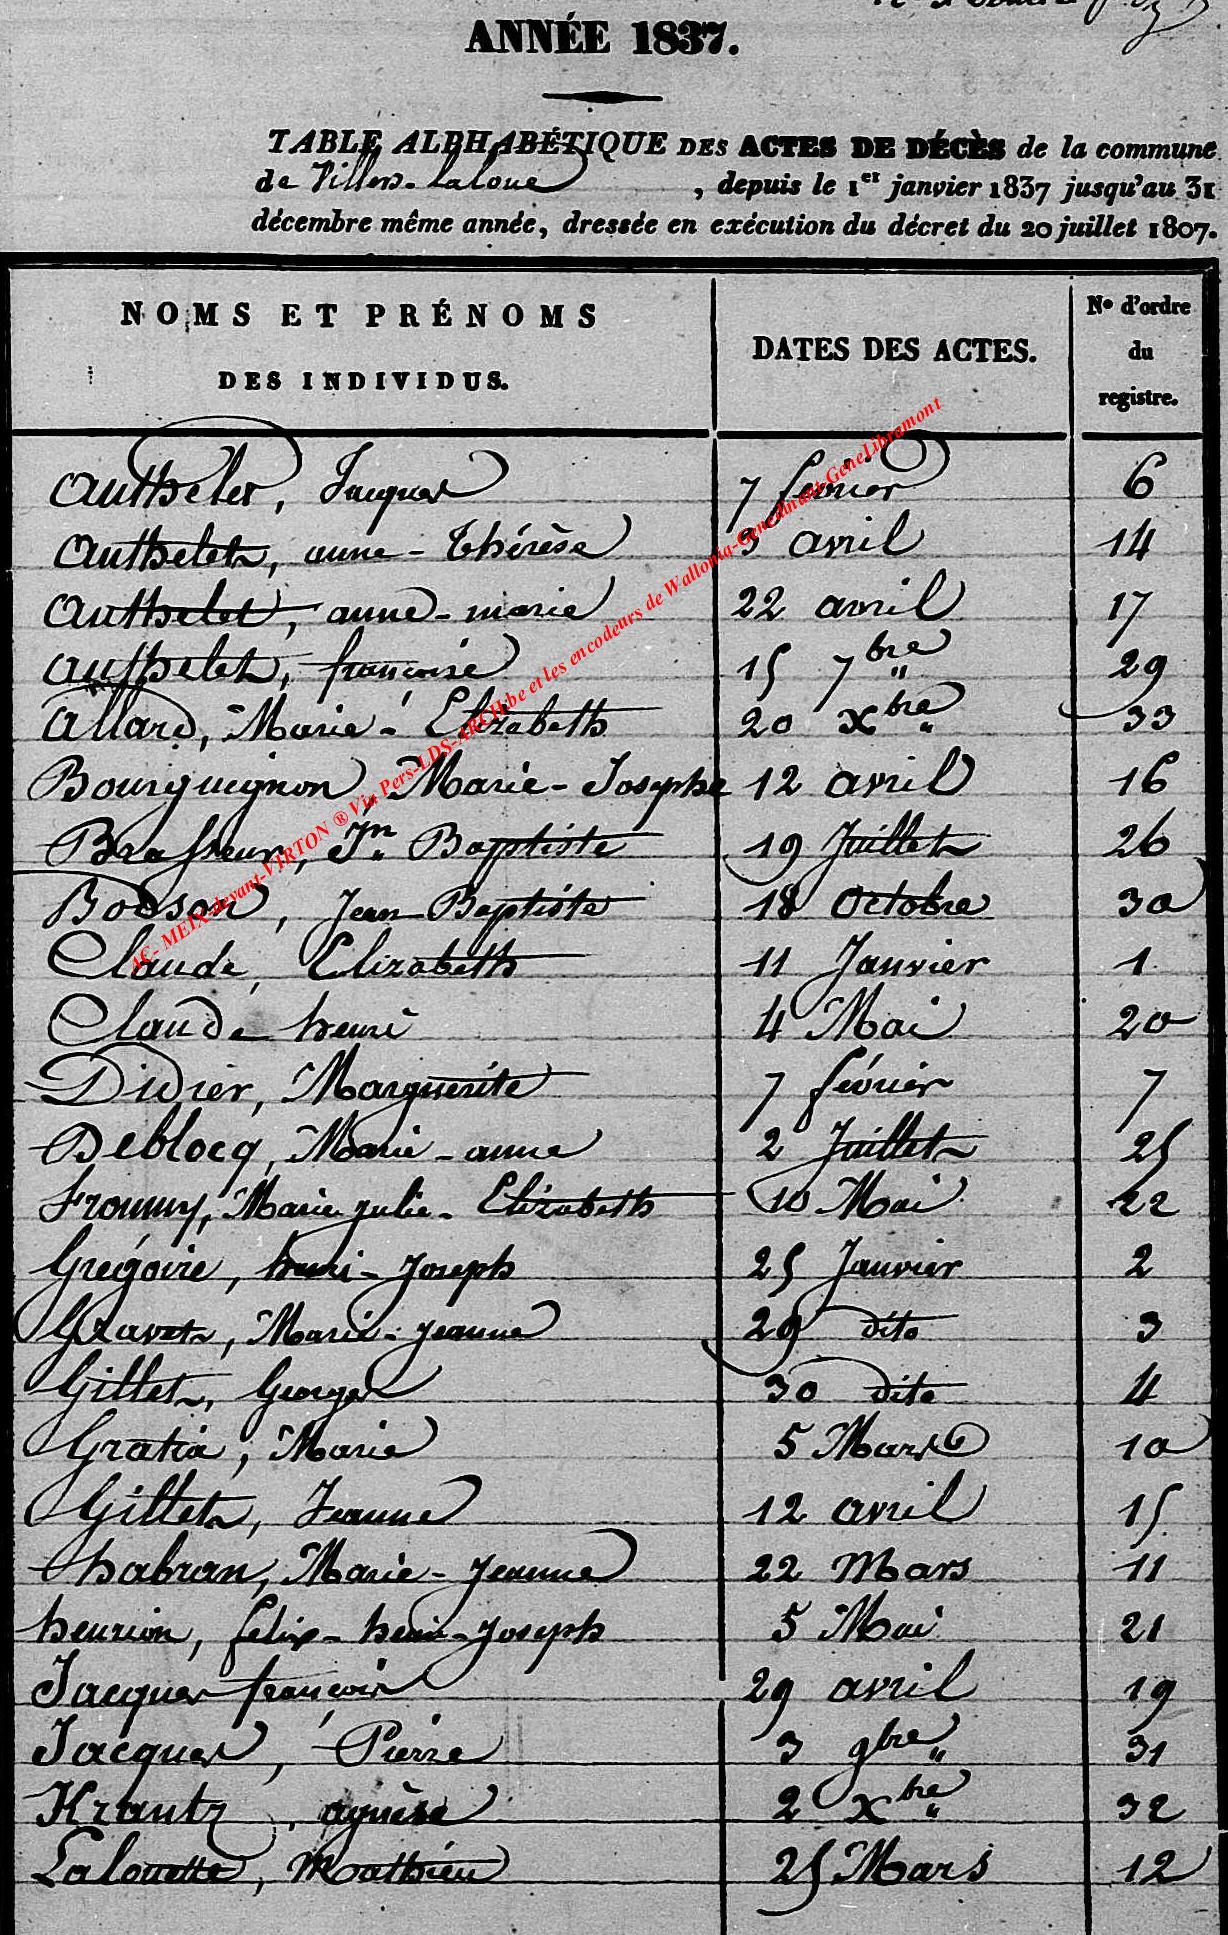 ANNÉE 1837.
TABLE ALPHABÉTIQUE DES ACTES DE DÉCÈS de la commune
de Villers-Laloue, depuis le 1er janvier 1837 jusqu'au 31
décembre même année, dressée en exécution du décret du 20 juillet 1807.
NOMS ET PRÉNOMS
DES INDIVIDUS.
DATES DES ACTES.
N° d'ordre
du
registre.
Authelet, Jacques 7 février 6
Authelet, anne-Thérèse 3 avril 14
Authelet, anne-marie 22 avril 17
Authelet, françoise 15 7bre 29
Allard, Marie-Elizabeth 20 Xbre 33
Bourguignon, Marie-Josephe 12 avril 16
Brasseur, Jn Baptiste 19 Juillet 26
Bodson, Jean-Baptiste 18 Octobre 30
Claude, Elizabeth 11 Janvier 1
Claude henri 4 Mai 20
Didier, Marguerite 7 février 7
Deblocq, Marie-anne 2 Juillet 25
Frommy, Marie julie-Elizabeth 10 Mai 22
Grégoire, henri-Joseph 25 Janvier 2
Gravet, Marie-jeanne 29 dito 3
Gillet, George 30 dito 4
Gratia, Marie 5 Mars 10
Gillet, Jeanne 12 avril 15
habran, Marie-Jeanne 22 Mars 11
henrion, felix-henri-Joseph 5 Mai 21
Jacques françois 29 avril 19
Jacques, Pierre 3 9bre 31
Krantz, agnèse 2 Xbre 32
Lalouette, Mathieu 25 Mars 12
AC- MEIX-devant-VIRTON ® Via Pers-LDS-ARCH.be et les encodeurs de Wallonia-Genealinant-GeneLibramont